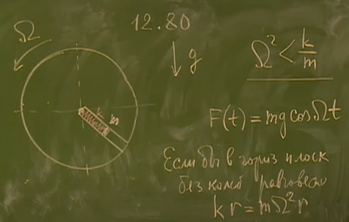 Ω
12.80
g
Ω² < k/m
k
m
F(t) = mg cos Ωt
Если бы в гориз плоск
без колеб равновесие
k r = m Ω² r